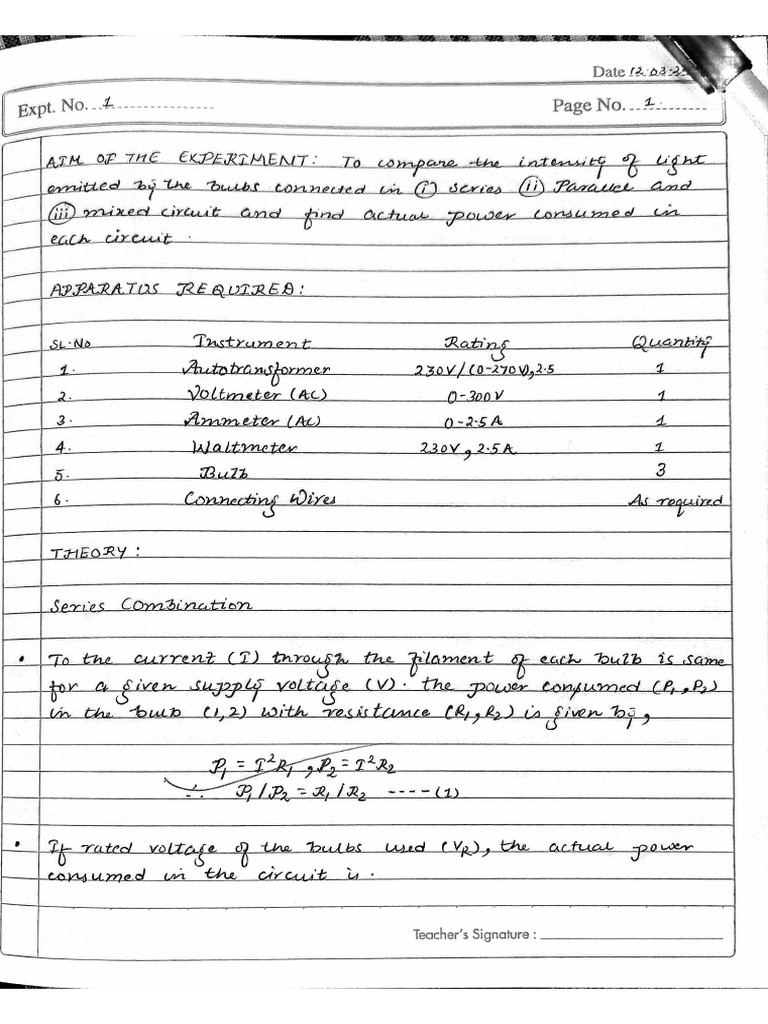 Date 12.03.2
Expt. No. 1
Page No. 1
AIM OF THE EXPERIMENT: To compare the intensity of light
emitted by the bulbs connected in (i) series (ii) Parallel and
(iii) mixed circuit and find actual power consumed in
each circuit.
APPARATUS REQUIRED:
SL.No Instrument Rating Quantity
1. Autotransformer 230V/(0-270V),2.5 1
2. Voltmeter (AC) 0-300V 1
3. Ammeter (AC) 0-2.5A 1
4. Waltmeter 230V, 2.5A 1
5. Bulb 3
6. Connecting Wires As required
THEORY:
Series Combination
• To the current (I) through the filament of each bulb is same
for a given supply voltage (V). the power consumed (P1, P2)
in the bulb (1,2) with resistance (R1, R2) is given by,
P1 = I²R1, P2 = I²R2
∴ P1/P2 = R1/R2 ----(1)
• If rated voltage of the bulbs used (VR), the actual power
consumed in the circuit is.
Teacher's Signature :